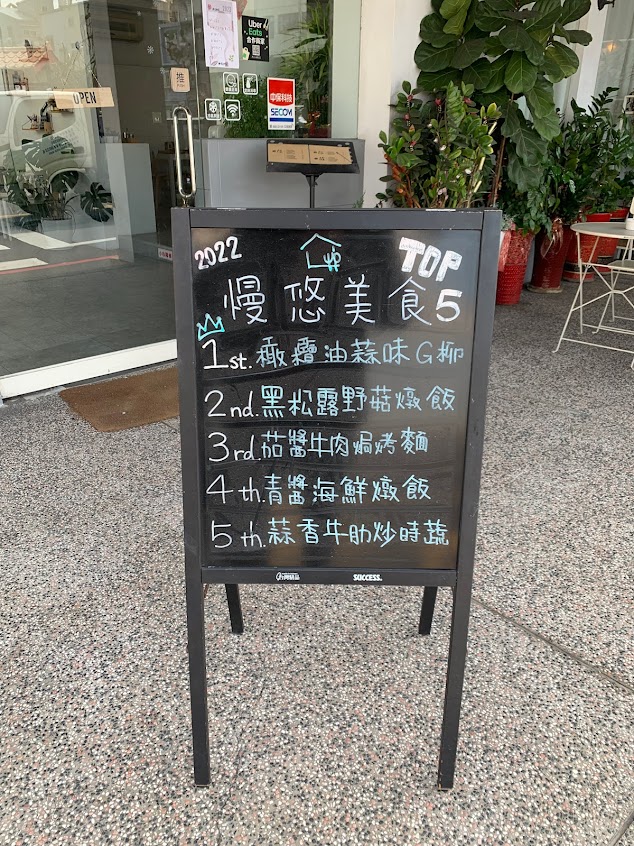 Uber
Eats
合作商家
推
OPEN
中保科技
SECOM
2022
TOP
慢悠美食5
1st.橄欖油蒜味G柳
2nd.黑松露野菇燉飯
3rd.茄醬牛肉焗烤麵
4th.青醬海鮮燉飯
5th.蒜香牛肋炒時蔬
SUCCESS.